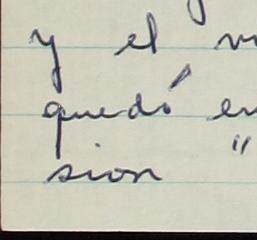 y el
quedó en
sion "